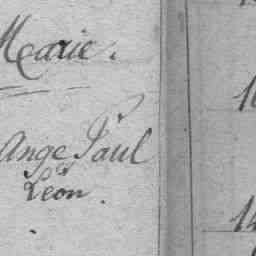 Marie.
Ange Paul
Léon.